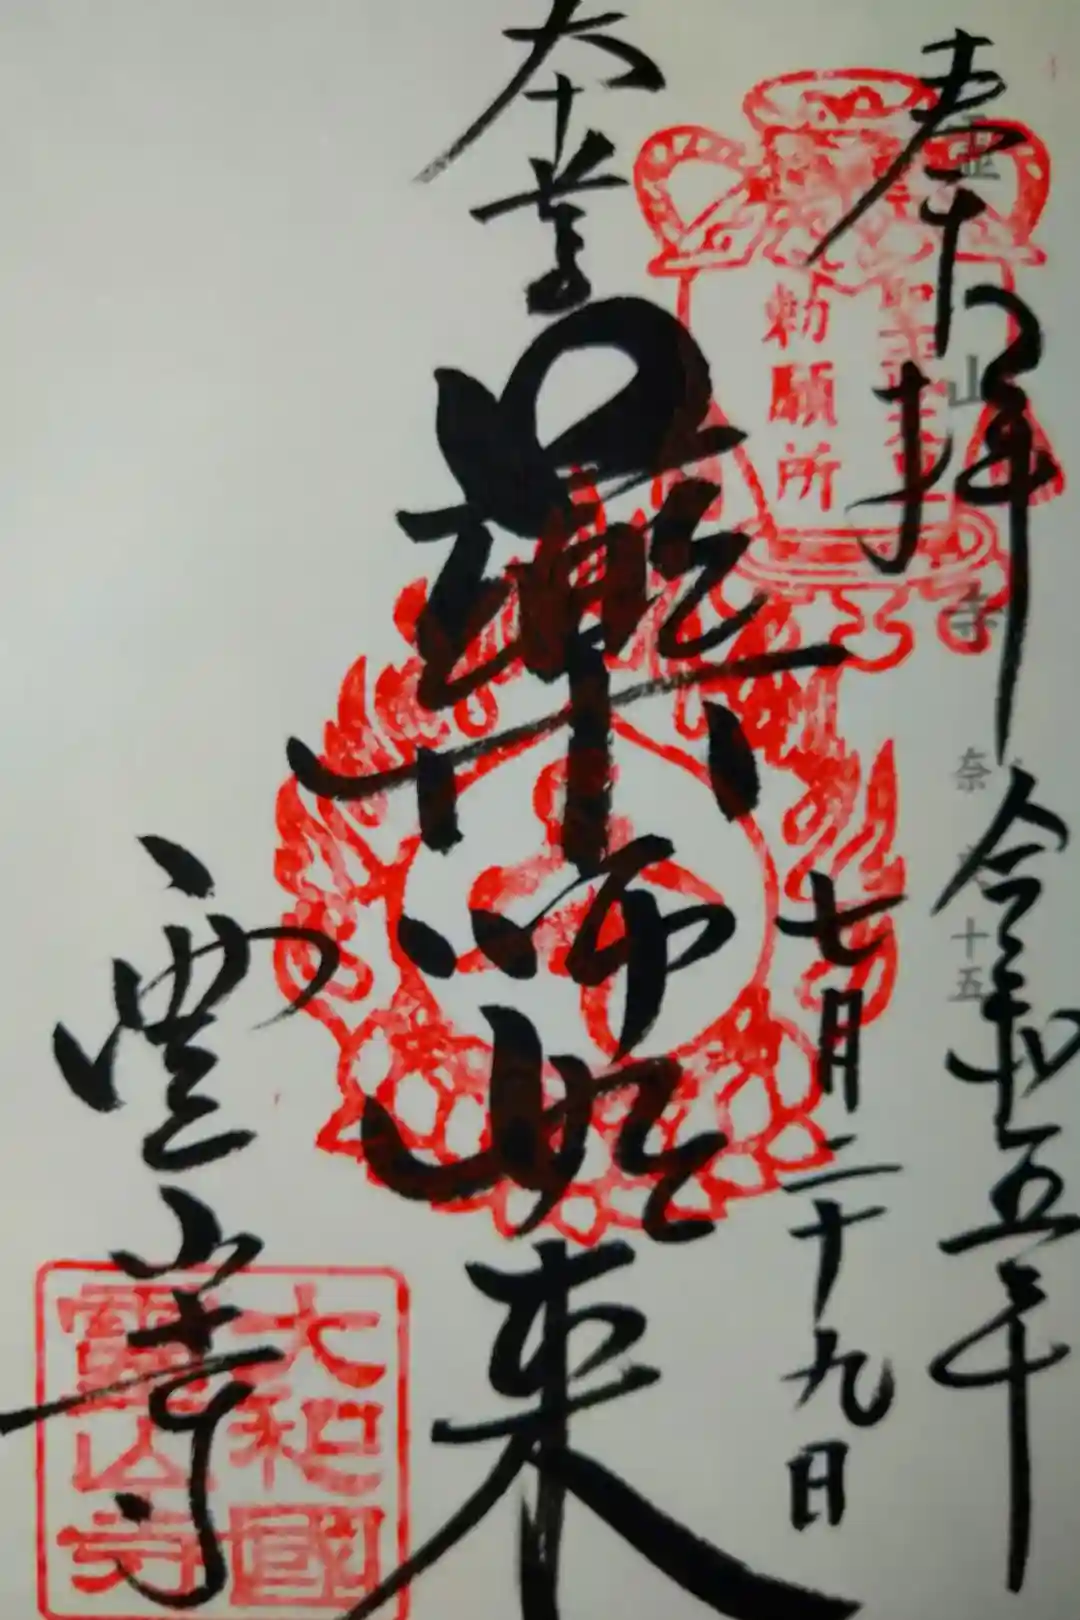 奉拝 令和五年
霊山寺 奈良 十五
七月二十九日
聖武天皇
勅願所
本堂
薬師如来
霊山寺
大和國
靈山寺